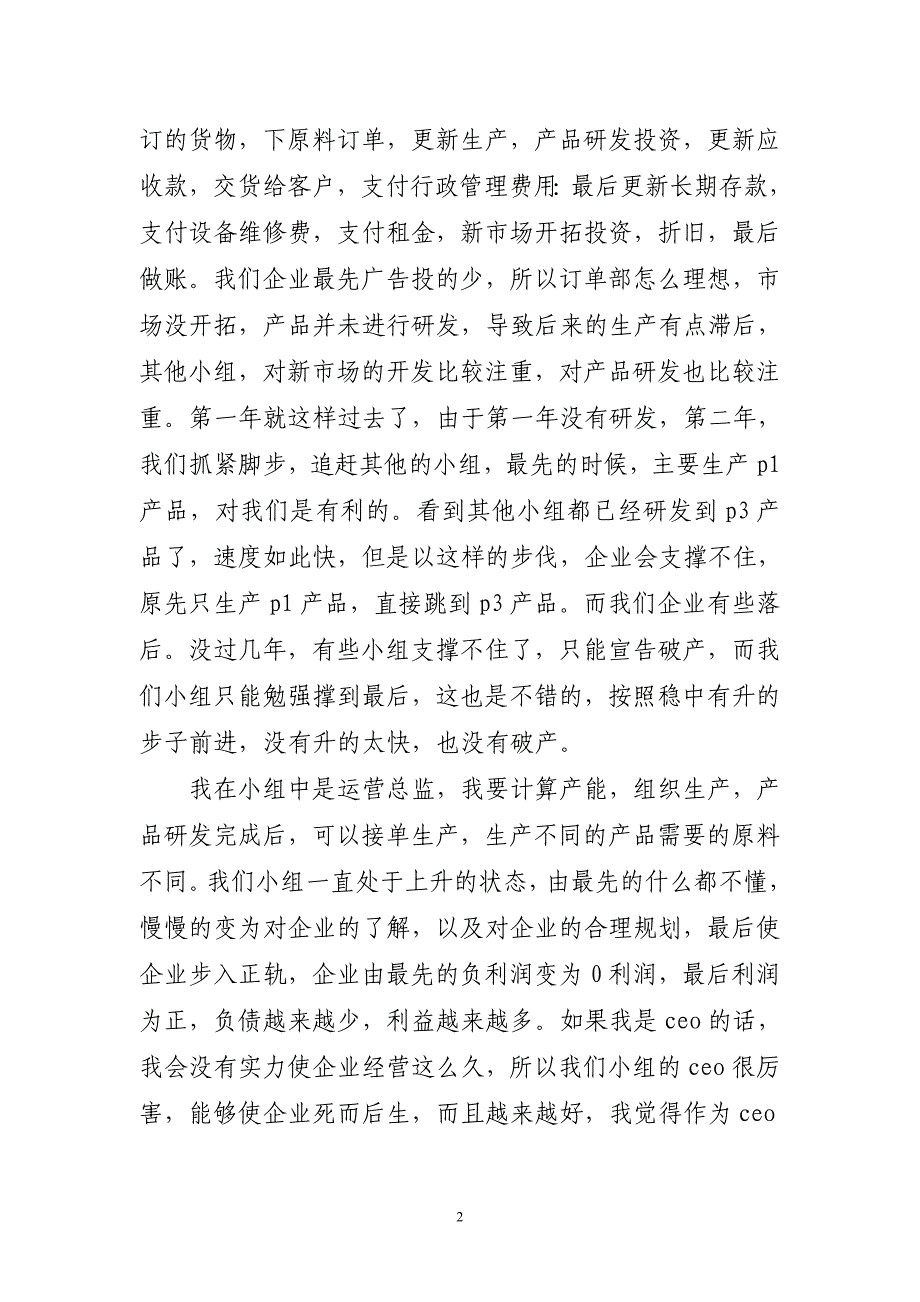 订的货物，下原料订单，更新生产，产品研发投资，更新应
收款，交货给客户，支付行政管理费用：最后更新长期存款，
支付设备维修费，支付租金，新市场开拓投资，折旧，最后
做账。我们企业最先广告投的少，所以订单部怎么理想，市
场没开拓，产品并未进行研发，导致后来的生产有点滞后，
其他小组，对新市场的开发比较注重，对产品研发也比较注
重。第一年就这样过去了，由于第一年没有研发，第二年，
我们抓紧脚步，追赶其他的小组，最先的时候，主要生产 p1
产品，对我们是有利的。看到其他小组都已经研发到 p3 产
品了，速度如此快，但是以这样的步伐，企业会支撑不住，
原先只生产 p1 产品，直接跳到 p3 产品。而我们企业有些落
后。没过几年，有些小组支撑不住了，只能宣告破产，而我
们小组只能勉强撑到最后，这也是不错的，按照稳中有升的
步子前进，没有升的太快，也没有破产。
我在小组中是运营总监，我要计算产能，组织生产，产
品研发完成后，可以接单生产，生产不同的产品需要的原料
不同。我们小组一直处于上升的状态，由最先的什么都不懂，
慢慢的变为对企业的了解，以及对企业的合理规划，最后使
企业步入正轨，企业由最先的负利润变为 0 利润，最后利润
为正，负债越来越少，利益越来越多。如果我是 ceo 的话，
我会没有实力使企业经营这么久，所以我们小组的 ceo 很厉
害，能够使企业死而后生，而且越来越好，我觉得作为 ceo
2